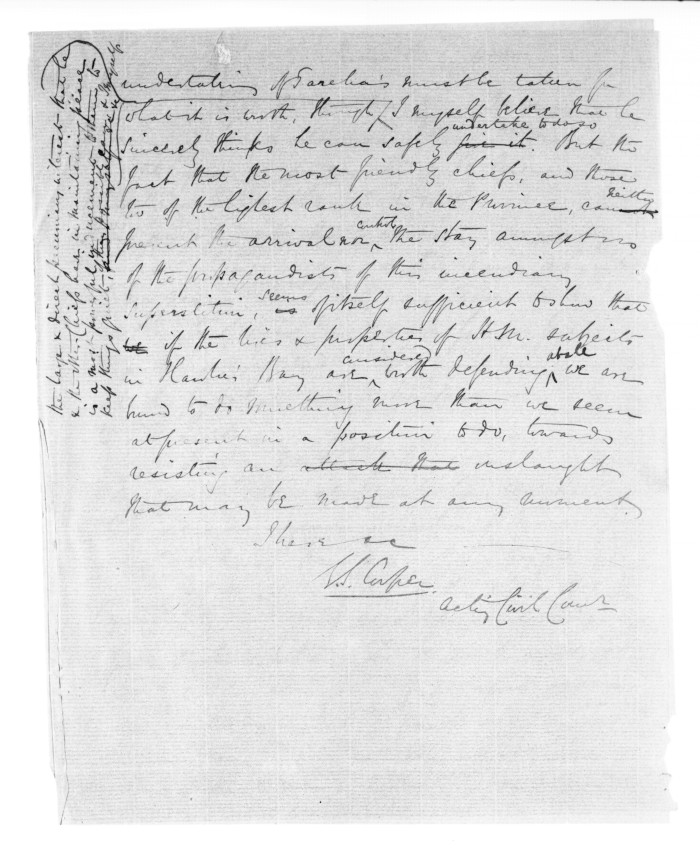 undertaking of Tareha's must be taken for
what it is worth, though I myself believe that he
undertake to do so
sincerely thinks he can safely give it. But the
fact that the most friendly chiefs, and those
neither
too of the highest rank in the Province, can
control
prevent the arrival nor the stay amongst us
of the propagandists of this incendiary
seems
superstition, is of itself sufficient to show that
if the lives & properties of H.M. subjects
considered
atall
in Hawke's Bay are worth defending we are
bound to do something more than we seem
at present in a position to do, towards
resisting an attack that onslaught
that may be made at any moment.
I have &c
G.S. Cooper.
Acting Civil Commr
the large & direct pecuniary interest that he
& the other Chiefs have in maintaining peace
is a most powerful inducement to them to
keep things quiet,